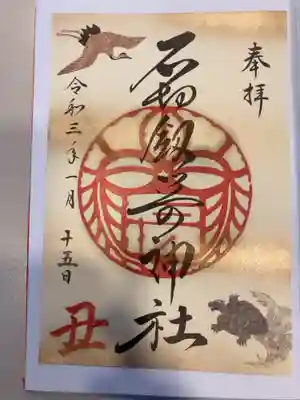 奉拝
石切劔箭神社
令和三年一月
十五日
丑